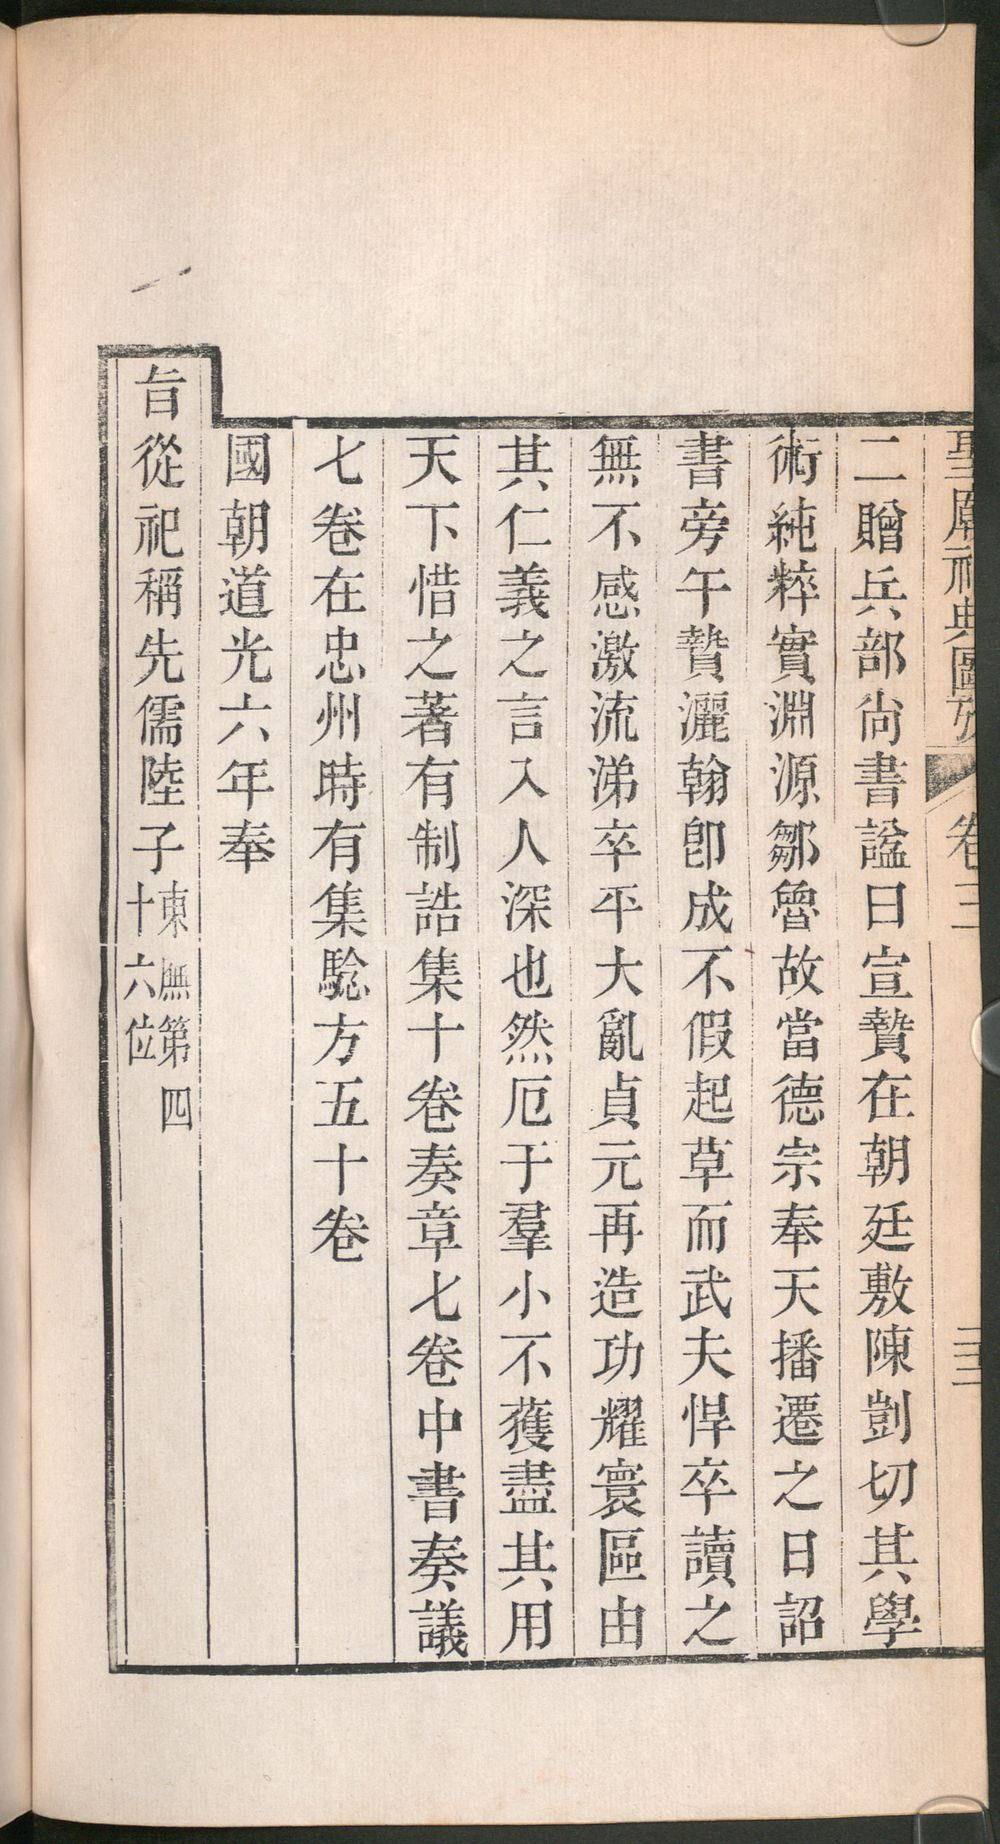 聖廟祀典圖攷
卷三
三十
二贈兵部尚書諡曰宣贄在朝廷敷陳剴切其學
術純粹實淵源鄒魯故當德宗奉天播遷之日詔
書旁午贄灑翰卽成不假起草而武夫悍卒讀之
無不感激流涕卒平大亂貞元再造功耀寰區由
其仁義之言入人深也然厄于羣小不獲盡其用
天下惜之著有制誥集十卷奏章七卷中書奏議
七卷在忠州時有集騐方五十卷
國朝道光六年奉
旨從祀稱先儒陸子東廡第四
十六位